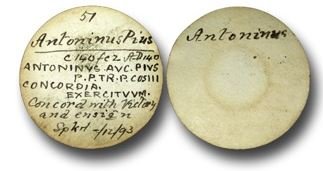 51
Antoninus Pius
C 140 fc2 A.D 140
ANTONINVS AVC. PIVS
P.P.TR.P.COSIII
CONCORDIA.
EXERCITVVM.
Concord with Victory
and ensign
-/12/93
Antoninus